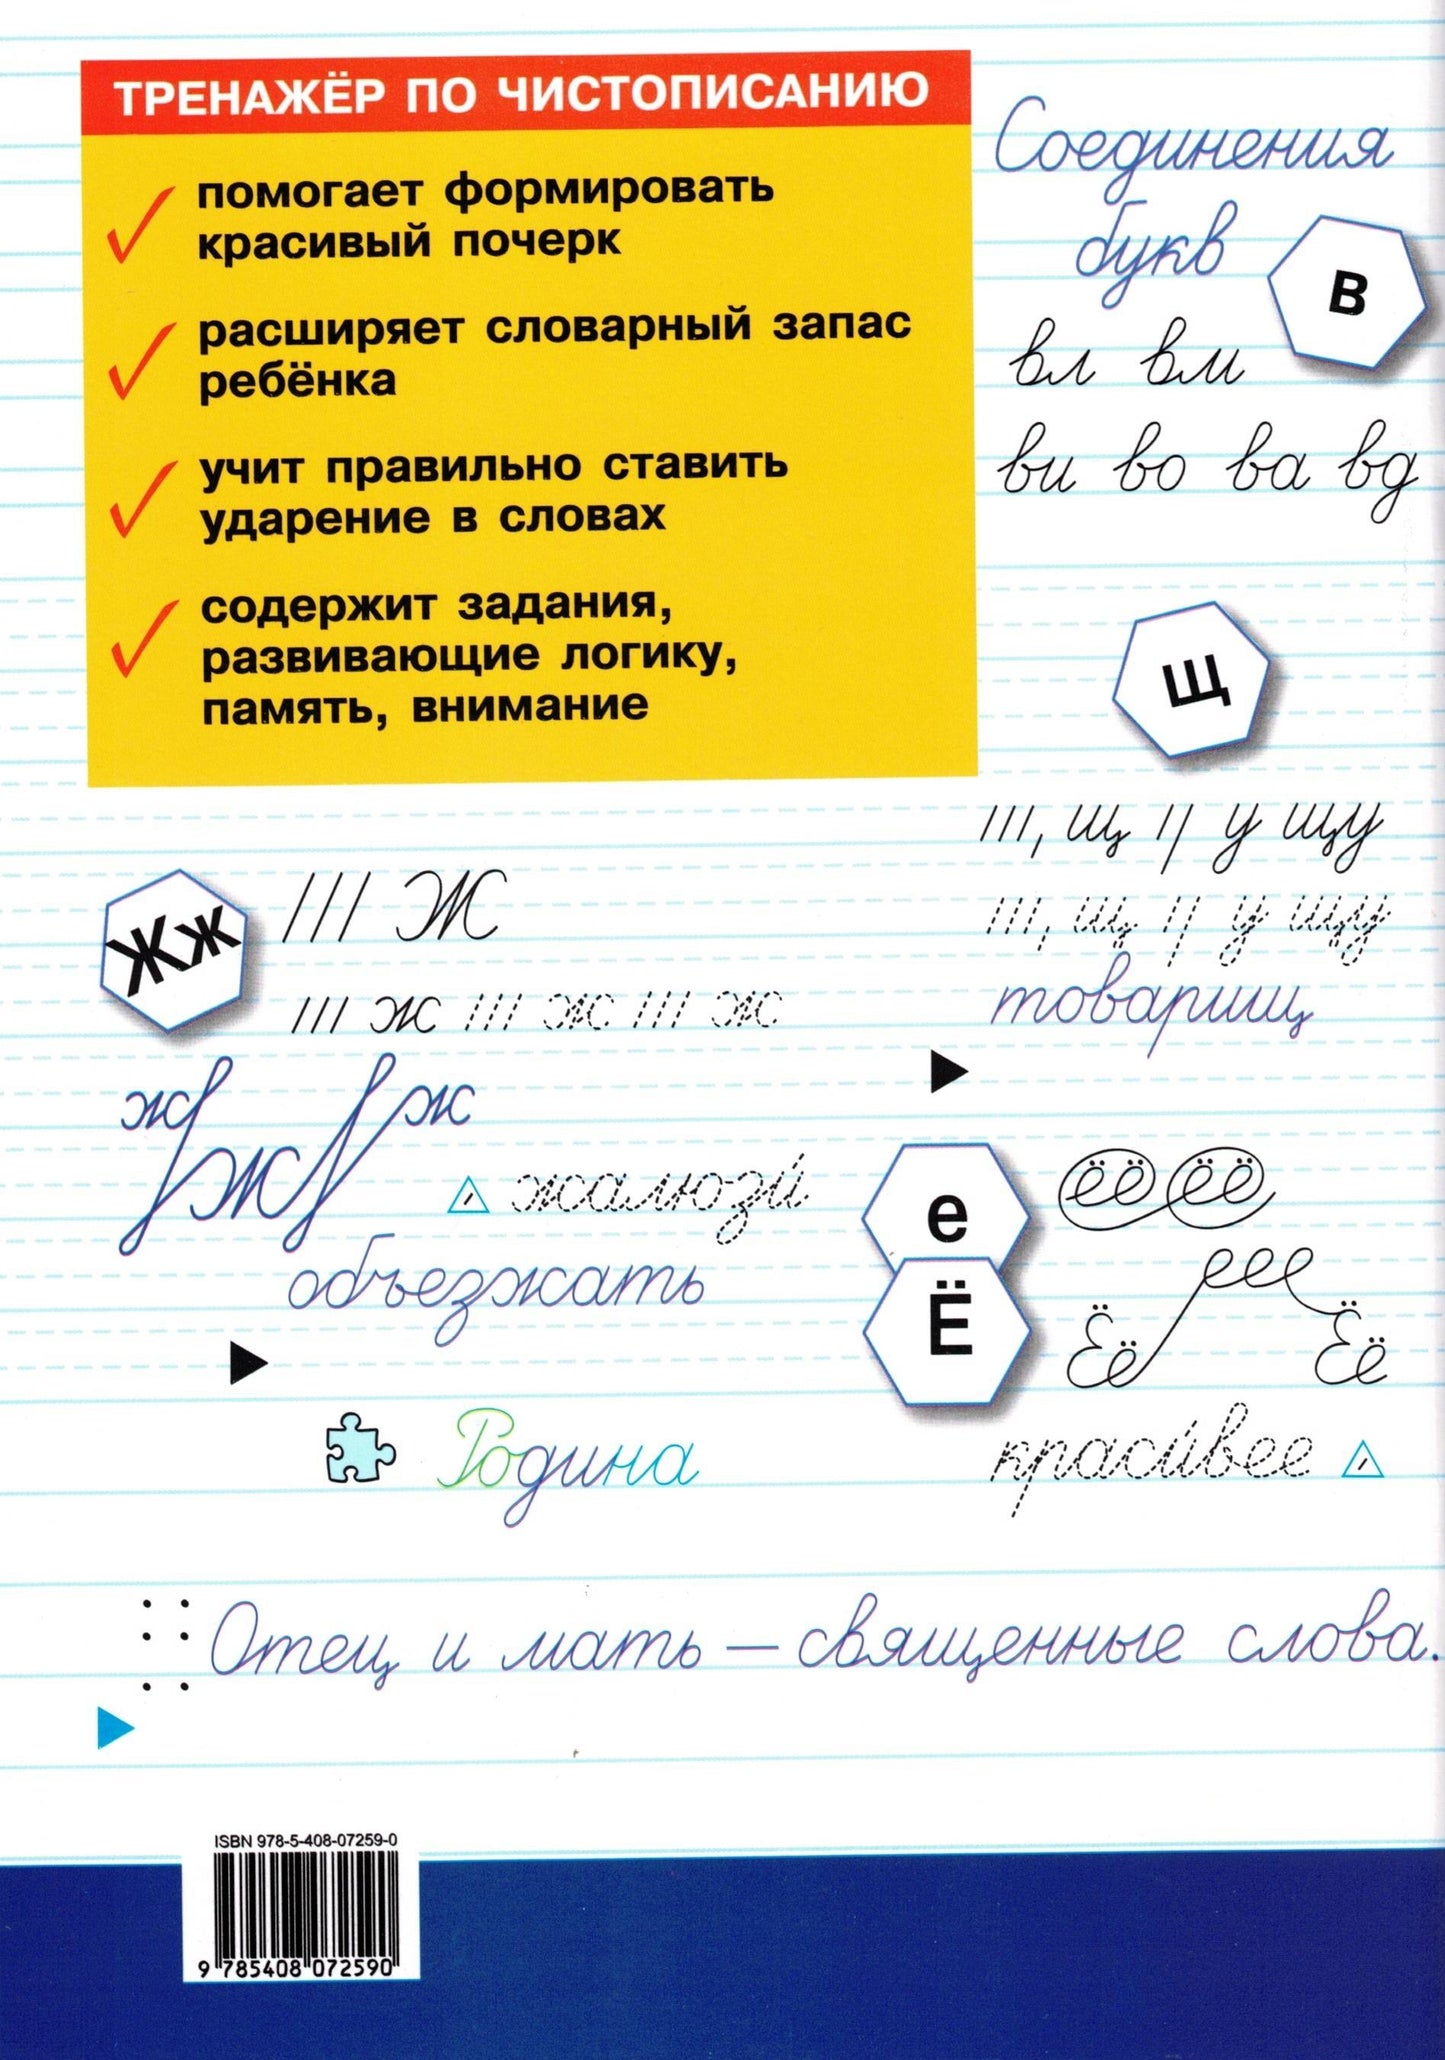 ТРЕНАЖЁР ПО ЧИСТОПИСАНИЮ
помогает формировать
красивый почерк
расширяет словарный запас
ребёнка
учит правильно ставить
ударение в словах
содержит задания,
развивающие логику,
память, внимание
Соединения
букв
в
вл вм
ви во ва вд
щ
щ у щу
щ у щу
товарищ
Жж
Ж
ж ж ж
ж ж ж
жалюзи́
объезжать
Родина
е
Ё
ёё ёё
еее
Ёё Ёё
краси́вее
Отец и мать – священные слова.
ISBN 978-5-408-07259-0
9 785408 072590